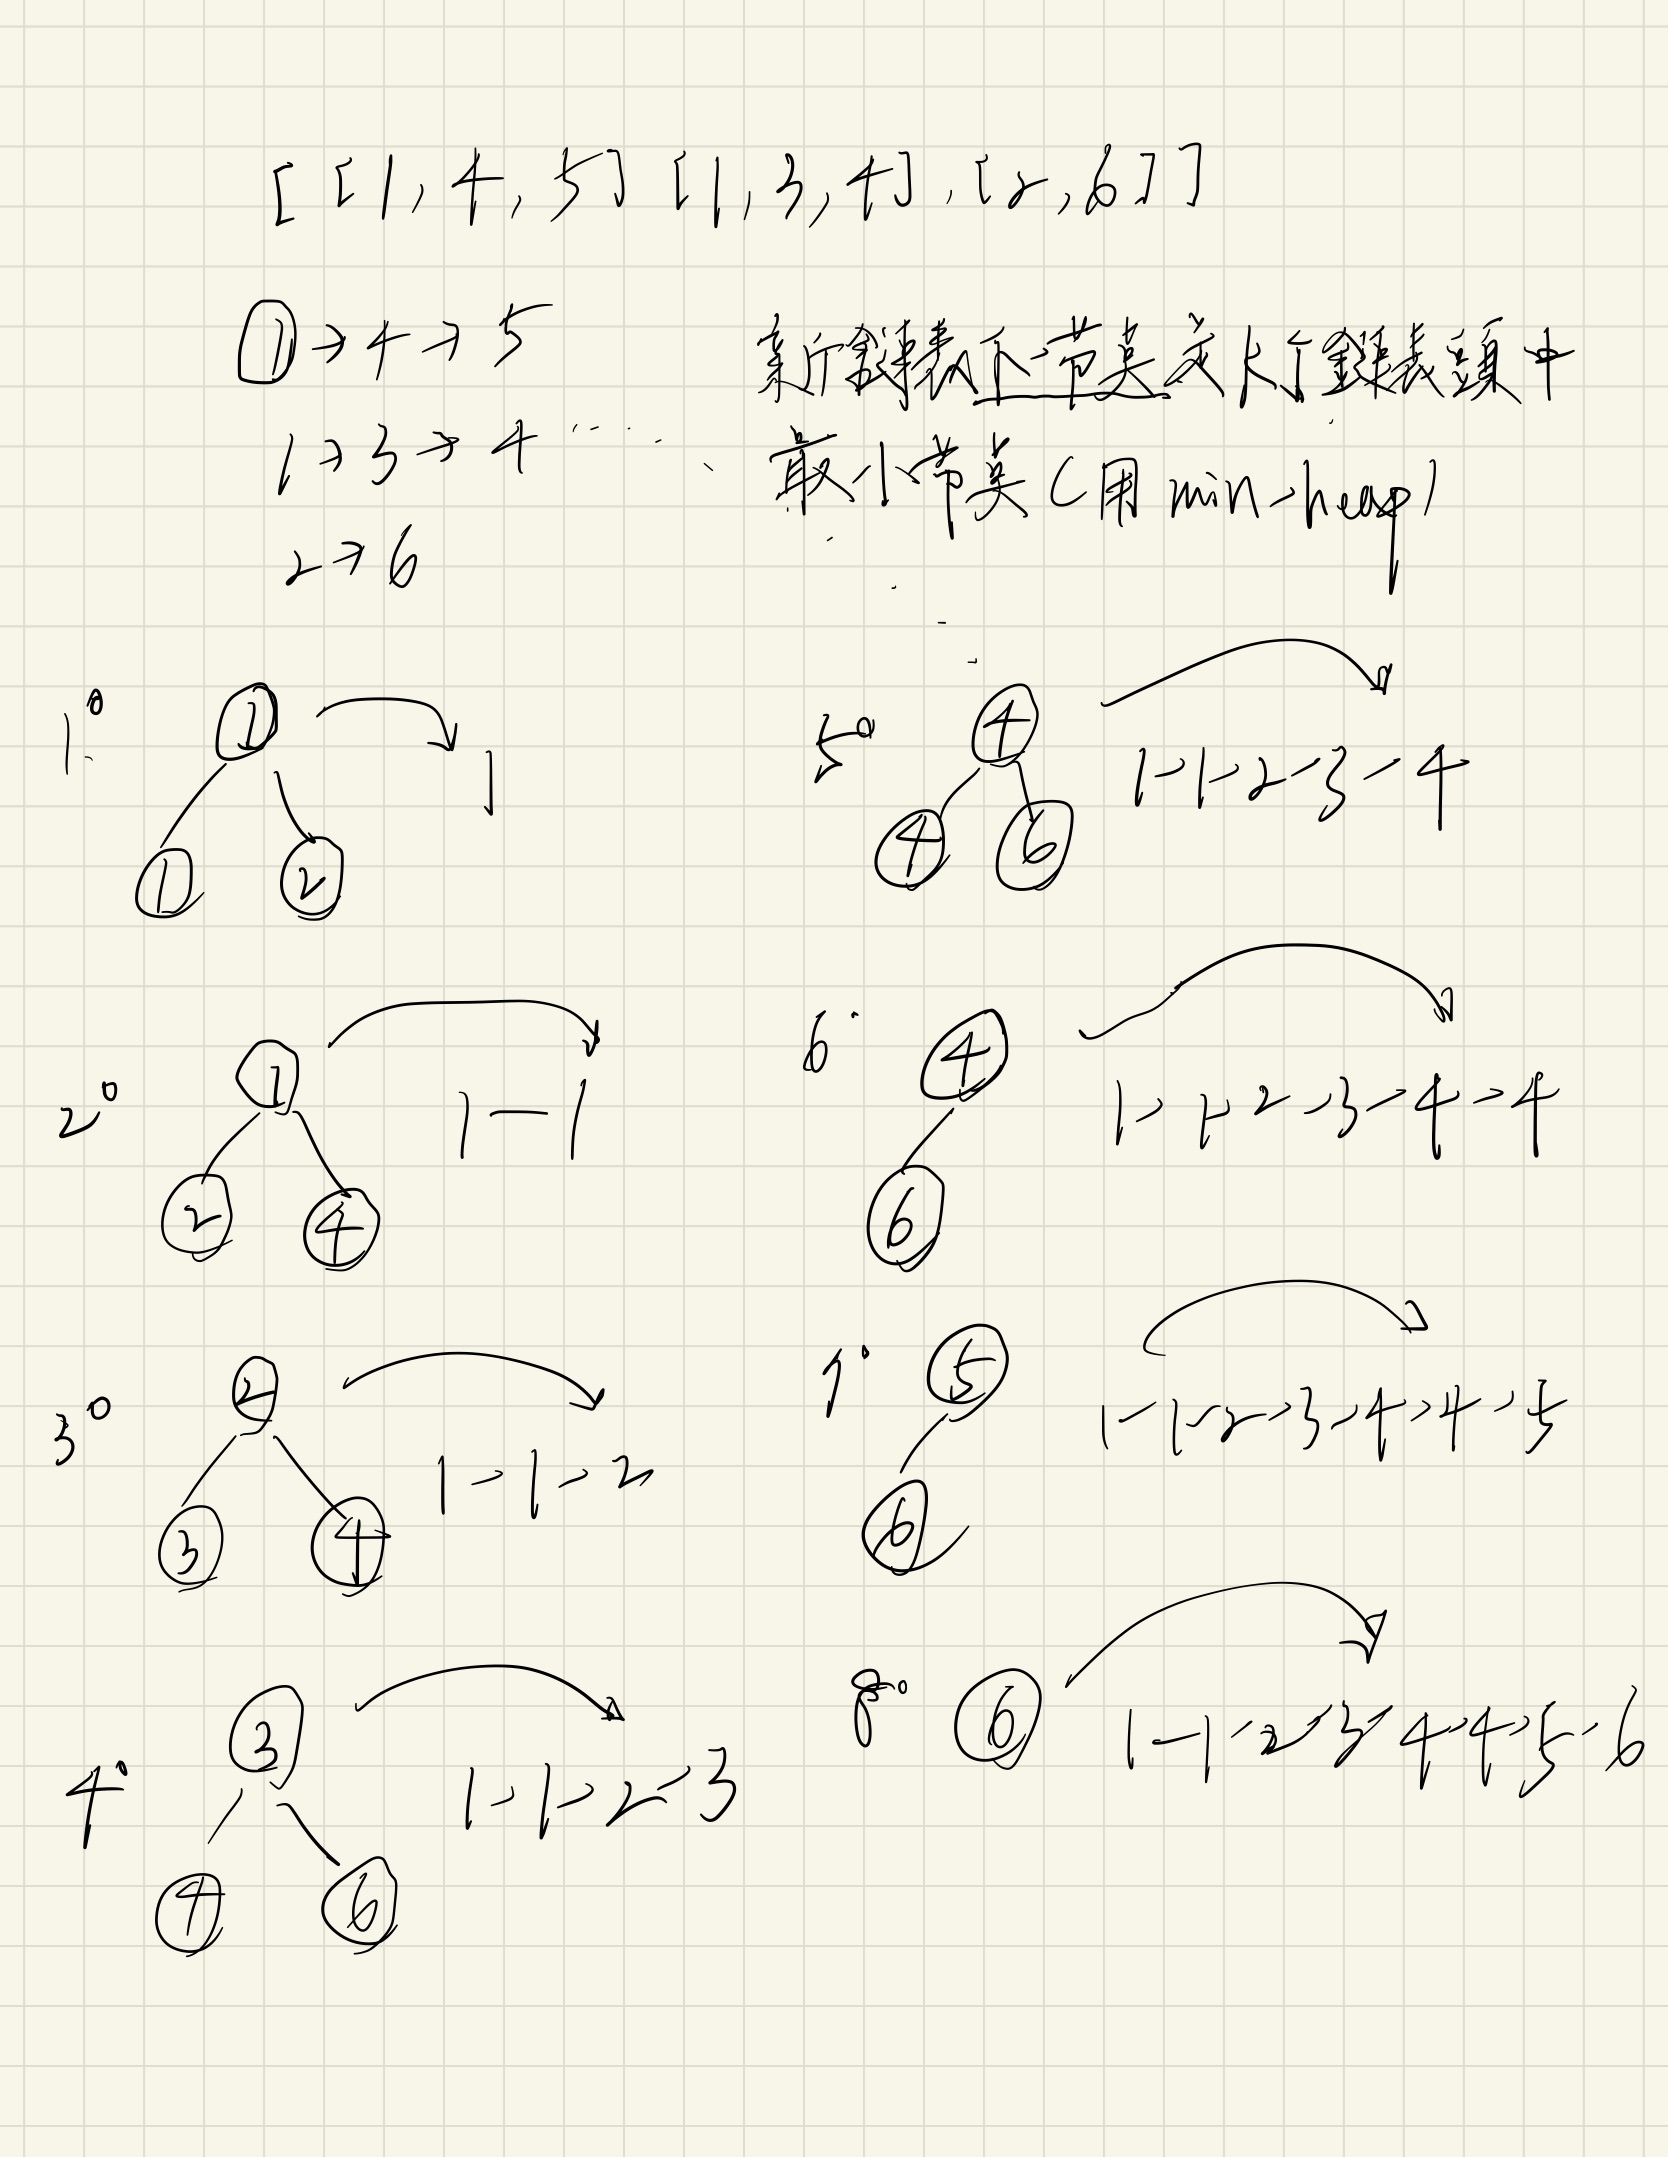 [[1,4,5][1,3,4],[2,6]]
①→4→5
1→3→4
2→6
新鏈表下一节点是K个鏈表頭中
最小节点(用min-heap)
1°
①
1
①
②
2°
①
1-1
②
④
3°
②
1->1->2
③
④
4°
③
1->1->2->3
④
⑥
5°
④
1->1->2->3->4
④
⑥
6°
④
1->1->2->3->4->4
⑥
7°
⑤
1->1->2->3->4->4->5
⑥
8°
⑥
1->1->2->3->4->4->5->6